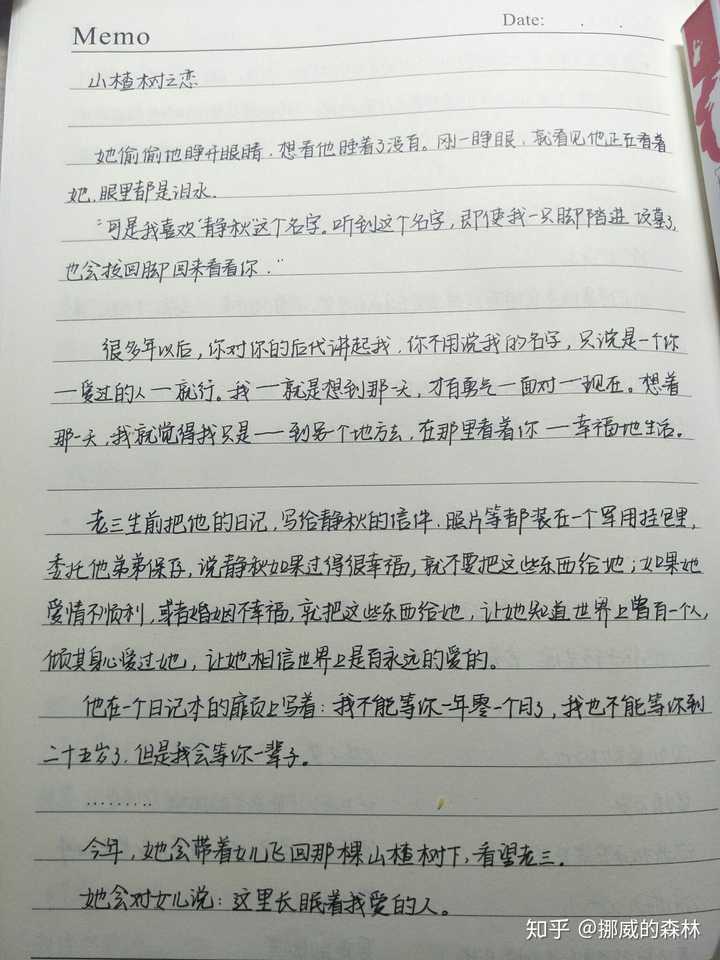 Memo
Date: . .
山楂树之恋
她偷偷地睁开眼睛，想看他睡着了没有。刚一睁眼，就看见他正在看着
她，眼里都是泪水.
"可是我喜欢"静秋"这个名字。听到这个名字，即使我一只脚踏进坟墓了,
也会拔回脚回来看看你."
很多年以后，你对你的后代讲起我，你不用说我的名字，只说是一个你
一爱过的人一就行。我一就是想到那一天，才有勇气一面对一现在。想着
那一天，我就觉得我只是一一到另个地方去，在那里看着你一幸福地生活。
老三生前把他的日记，写给静秋的信件，照片等都装在一个军用挂包里,
委托他弟弟保存，说静秋如果过得很幸福，就不要把这些东西给她；如果她
爱情不顺利，或者婚姻不幸福，就把这些东西给她，让她知道世界上曾有一个人，
倾其身心爱过她，让她相信世界上是有永远的爱的。
他在一个日记本的扉页上写着：我不能等你一年零一个月了，我也不能等你到
二十五岁了，但是我会等你一辈子。
.........
今年，她会带着女儿飞回那棵山楂树下，看望老三.
她会对女儿说：这里长眠着我爱的人。
知乎 @挪威的森林